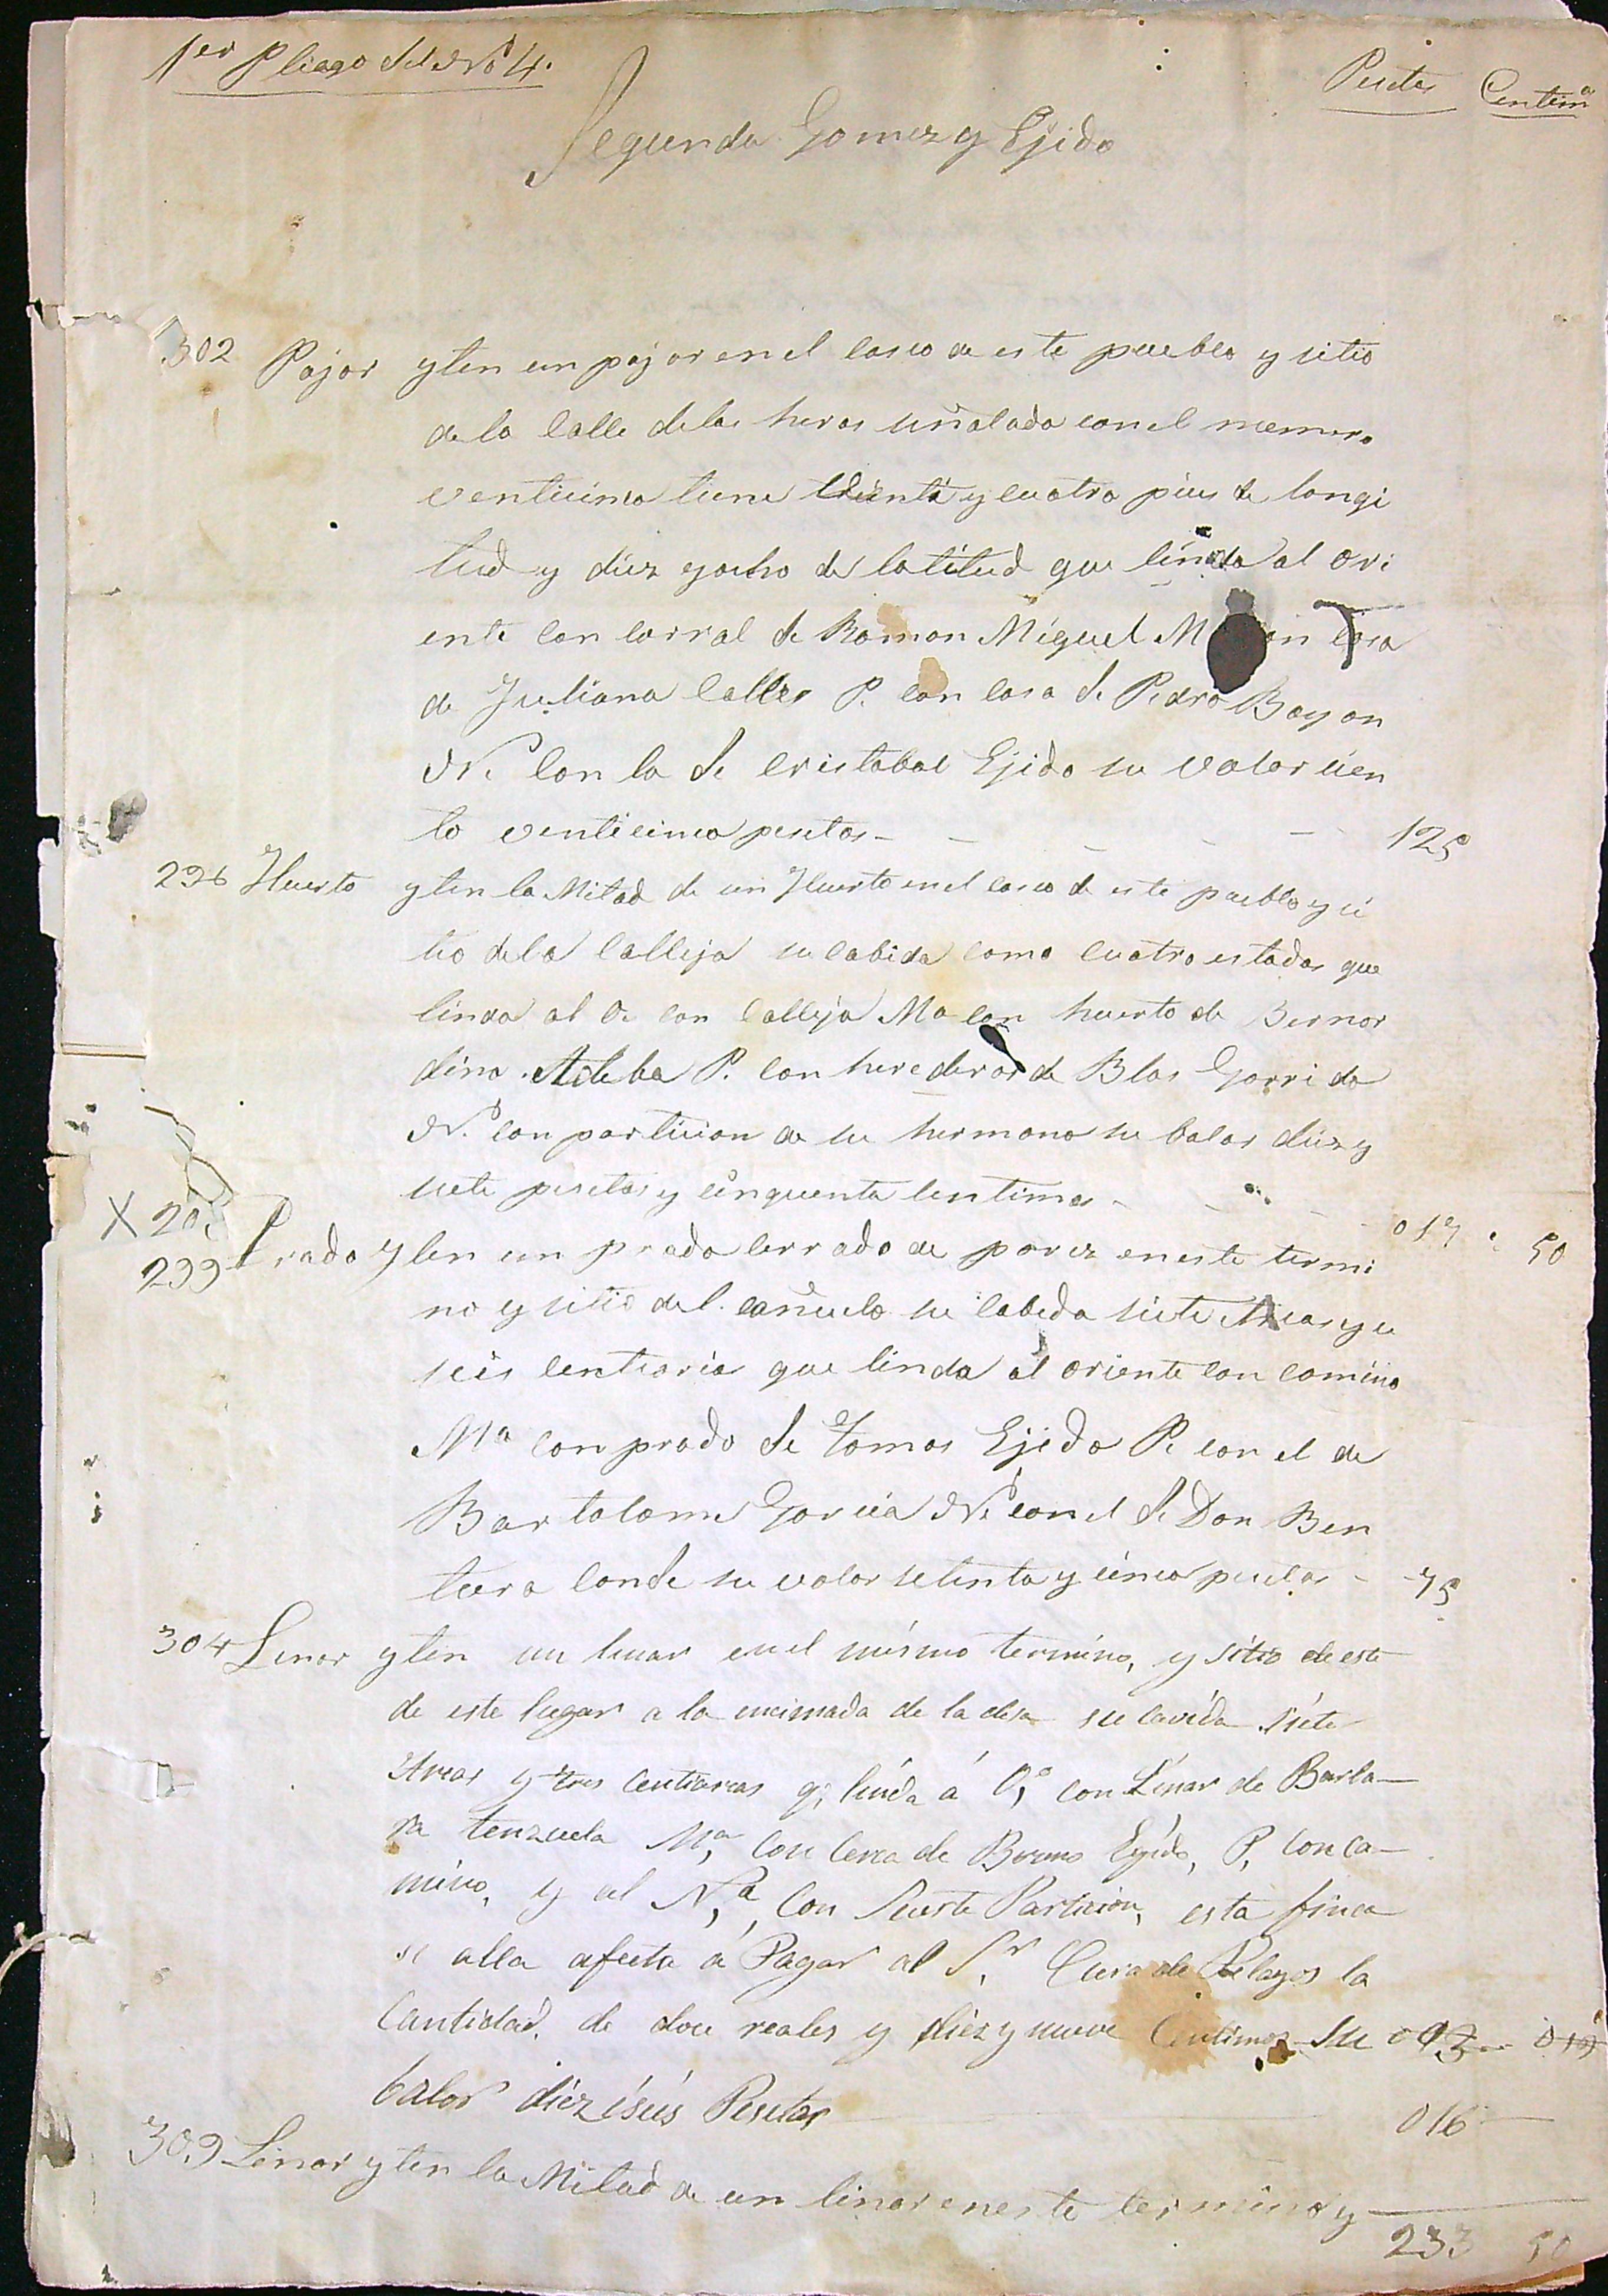 1er Pliego del No 4.
Pesetas Centimos
Segunda Gomez y Ejido
302 Pajar yten un pajar en el casco de este pueblo y sitio
de la Calle de las heras señalado con el numero
venticinco tiene treinta y cuatro pies de longi
tud y diez y ocho de latitud que linda al Ori
ente con corral de Ramon Miguel M con Casa
de Juliana Calleja P. con casa de Pedro Bayon
N. Con la de Cristobal Ejido su valor cien
to venticinco pesetas - - - - 125
296 Huerto yten la Mitad de un Huerto en el casco de este pueblo y si
tio de la Calleja su cabida como cuatro estados que
linda al O. con Calleja Ma con huerto de Bernar
dino Adeba P. con herederos de Blas Garrido
N. con particion de su hermano su balor diez y
siete pesetas y cinquenta centimos - - 017 . 50
X 20
299 Prado Yten un prado cerrado de pared en este termi
no y sitio del cañuelo su cabida siete Areas y
seis centiarias que linda al oriente con camino
Ma con prado de Tomas Ejido P. con el de
Bartolome Garcia N. con el de Don Ben
tura Conde su valor setenta y cinco pesetas - - 75
304 Linar yten un linar en el mismo termino, y sitio de este
de este lugar a la encimada de la desa su cavida siete
Areas y tres Centiareas q, linda á O, con Linar de Barba-
ra tenzuela Ma, Con Cerca de Bruno Egido, P, Con ca-
mino, y al N,a, Con Suerte Particion, esta finca
se alla afecta á Pagar al Sr, Cura de Pelayos la
Cantidad, de doce reales y diez y nueve Centimos Su 093 019
balor diez iseis Pesetas 016
309 Linar yten la Mitad de un linar en este termino y
233 50